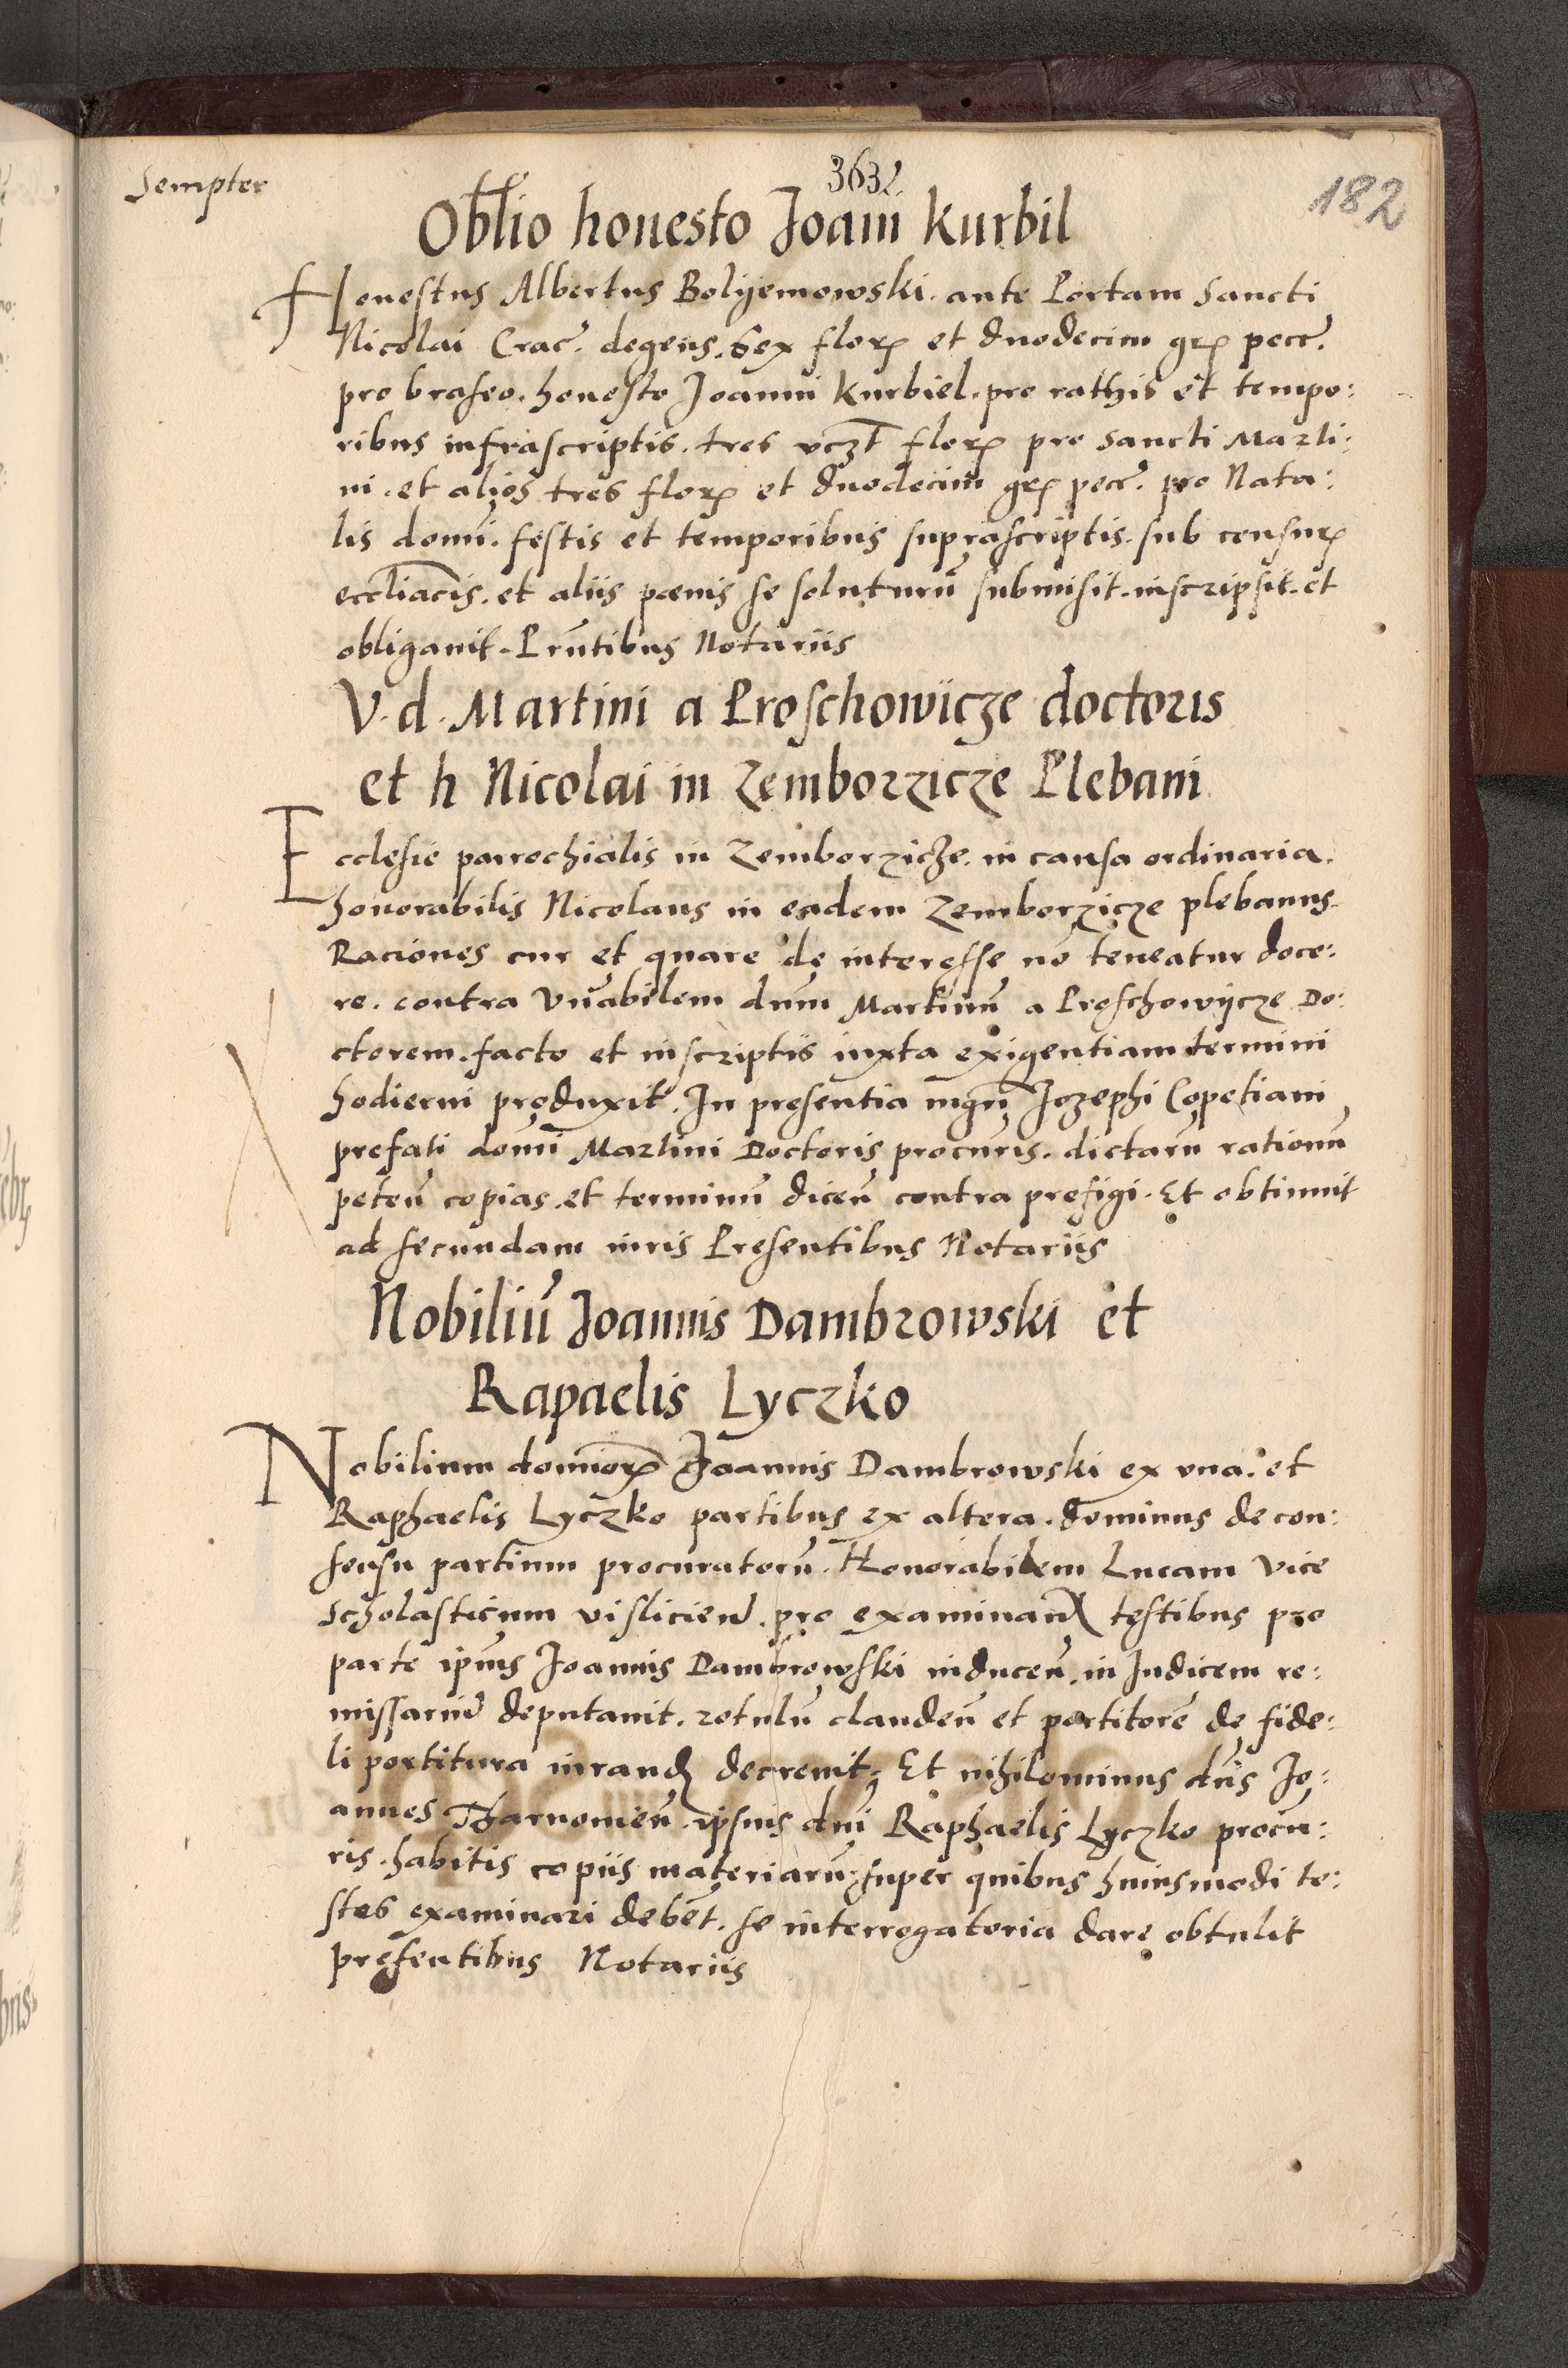 Sempter
3632.
182
Obllio honesto Joanni Kurbil
Honestus Albertus Bolyemowski. ante Portam Sancti
Nicolai Crac. degens. Sex flor et duodecim gr pecc.
pro braseo. honesto Joanni Kurbiel. pro rathis et tempo:
ribus infrascriptis. tres vczt flor pro Sancti Marti:
ni. et alios tres flor et duodecim gr pecc. pro Nata:
lis domi. festis et temporibus suprascriptis. sub censur
eccliacis. et aliis pœnis se soluturū submisit. inscripsit. et
obligauit. Prūtibus Notariis
V. d. Martini a Proschowicze doctoris
et h Nicolai in Zemborzicze Plebani
Ecclesie parrochialis in Zemborzicze. in causa ordinaria.
honorabilis Nicolaus in eadem Zemborzicze plebanus.
Raciones cur et quare de interesse nō teneatur doce:
re. contra Vnabilem dnm Martinū a Proschowycze Do:
ctorem. facto et inscriptis iuxta exigentiam termini
hodierni produxit. In presentia mgri Jozephi Copetiani
prefati domi Martini Doctoris procuris. dictarū rationū
peteñ copias. et terminū diceñ contra prefigi. Et obtinuit
ad secundam iuris Presentibus Notariis
Nobiliū Joannis Dambrowski et
Rapaelis Lyczko
Nobilium domior Joannis Dambrowski ex vna. et
Raphaelis Lyczko partibus ex altera. dominus de con:
sensu partium procuratorū. Honorabilem Lucam Vice
Scholasticum visliciens. pro examinand testibus pro
parte ipius Joannis Dambrowski induceñ. in Judicem re:
missariū deputauit. rotulū claudeñ et portitorē de fide:
li portitura iurand decreuit. Et nihilominus dns Jo:
annes Tharnomieñ. ipsius dni Raphaelis Lyczko procu:
ris. habitis copiis materiarū. super quibus huiusmodi te:
stes examinari debēt. se interrogatoria dare obtulit
presentibus Notariis